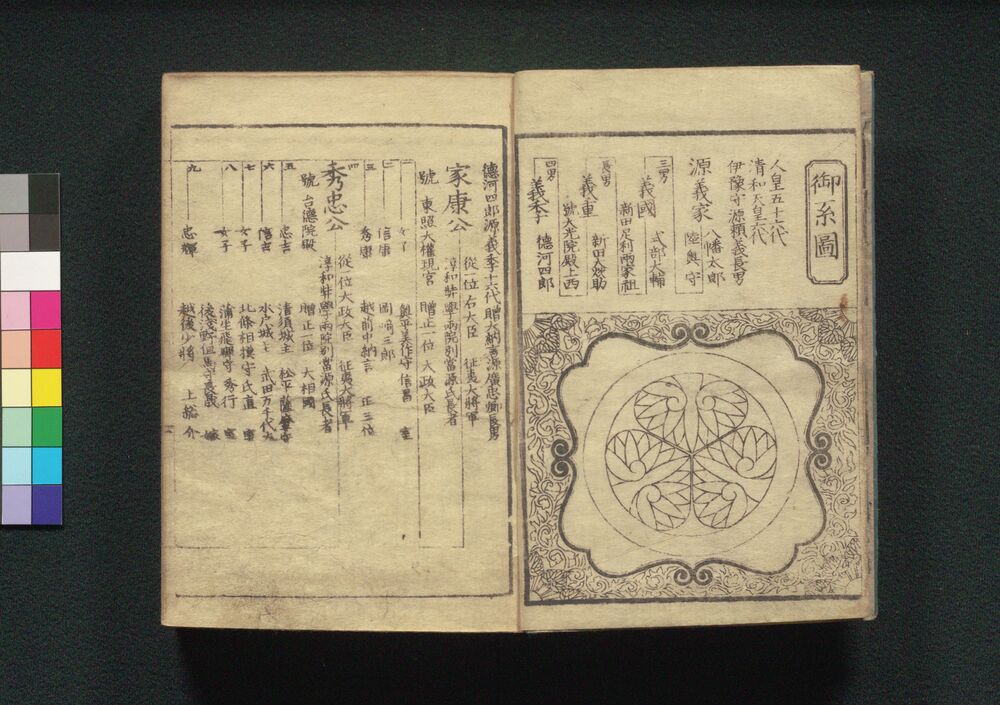 御系圖
人皇五十六代
清和天皇六代
伊豫守源頼義長男
源義家 八幡太郎
陸奥守
三男
義國 式部大輔
新田足利両家祖
長男
義重 新田大炊助
號大光院殿上西
四男
義季 德河四郎
德河四郎源義季十六代贈大納言源廣忠卿長男
家康公 從一位右大臣 征夷大将軍
淳和弉學両院別當源氏長者
號 東照大權現宮 贈正一位 大政大臣
一 女子 奥平美作守信昌 室
二 信康 岡崎三郎
三 秀康 越前中納言 正三位
四 秀忠公 從一位大政大臣 征夷大将軍
淳和弉學両院別當源氏長者
號 台德院殿 贈正一位 大相國
五 忠吉 清須城主 松平薩摩守
六 信吉 水戸城主 武田万千代丸
七 女子 北條相摸守氏直 室
八 女子 蒲生飛騨守秀行 室
後淺野但馬守長晟 室
九 忠輝 越後少將 上総介